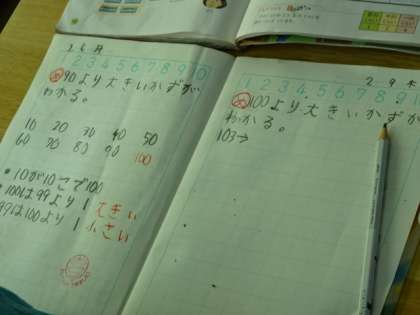 2 6 月
2 3 4 5 6 7 8 9 10
め 90より大きいかずが
わかる。
10 20 30 40 50
60 70 80 90 100
・10が10こで100
・100は99より1大きい
99は100より1小さい
2 9 木
1 2 3 4 5 6 7 8 9
め 100より大きいかずが
わかる。
103→